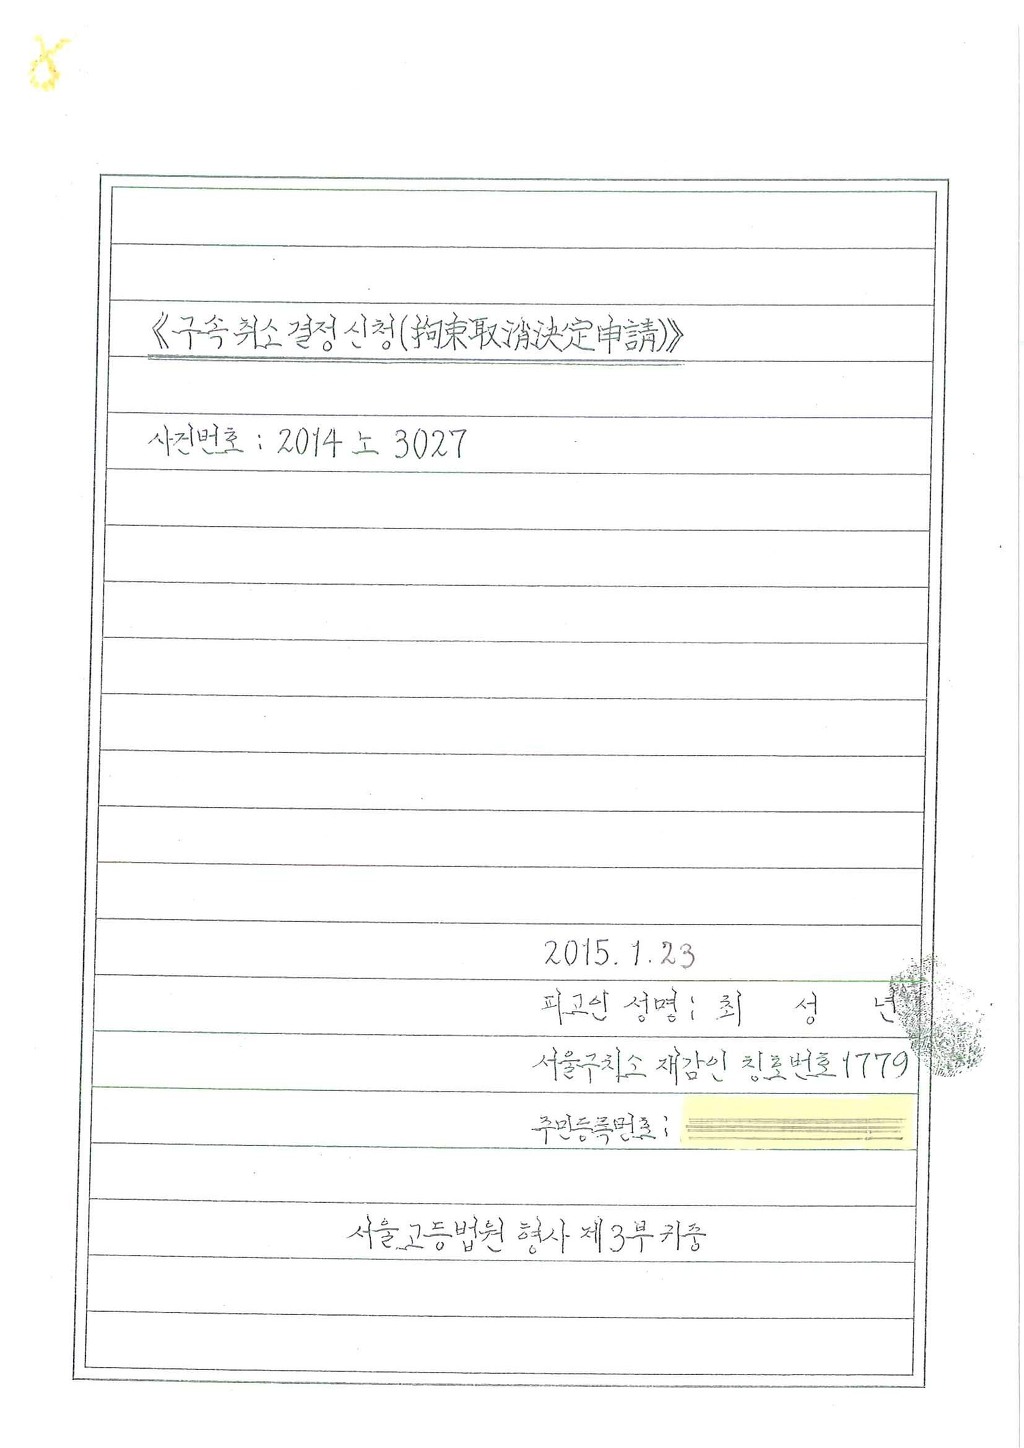 《구속취소결정신청(拘束取消決定申請)》
사건번호 : 2014 노 3027
2015. 1. 23
피고인 성명 : 최 성 년
서울구치소 재감인 칭호번호 1779
주민등록번호 :
서울고등법원 형사 제3부 귀중